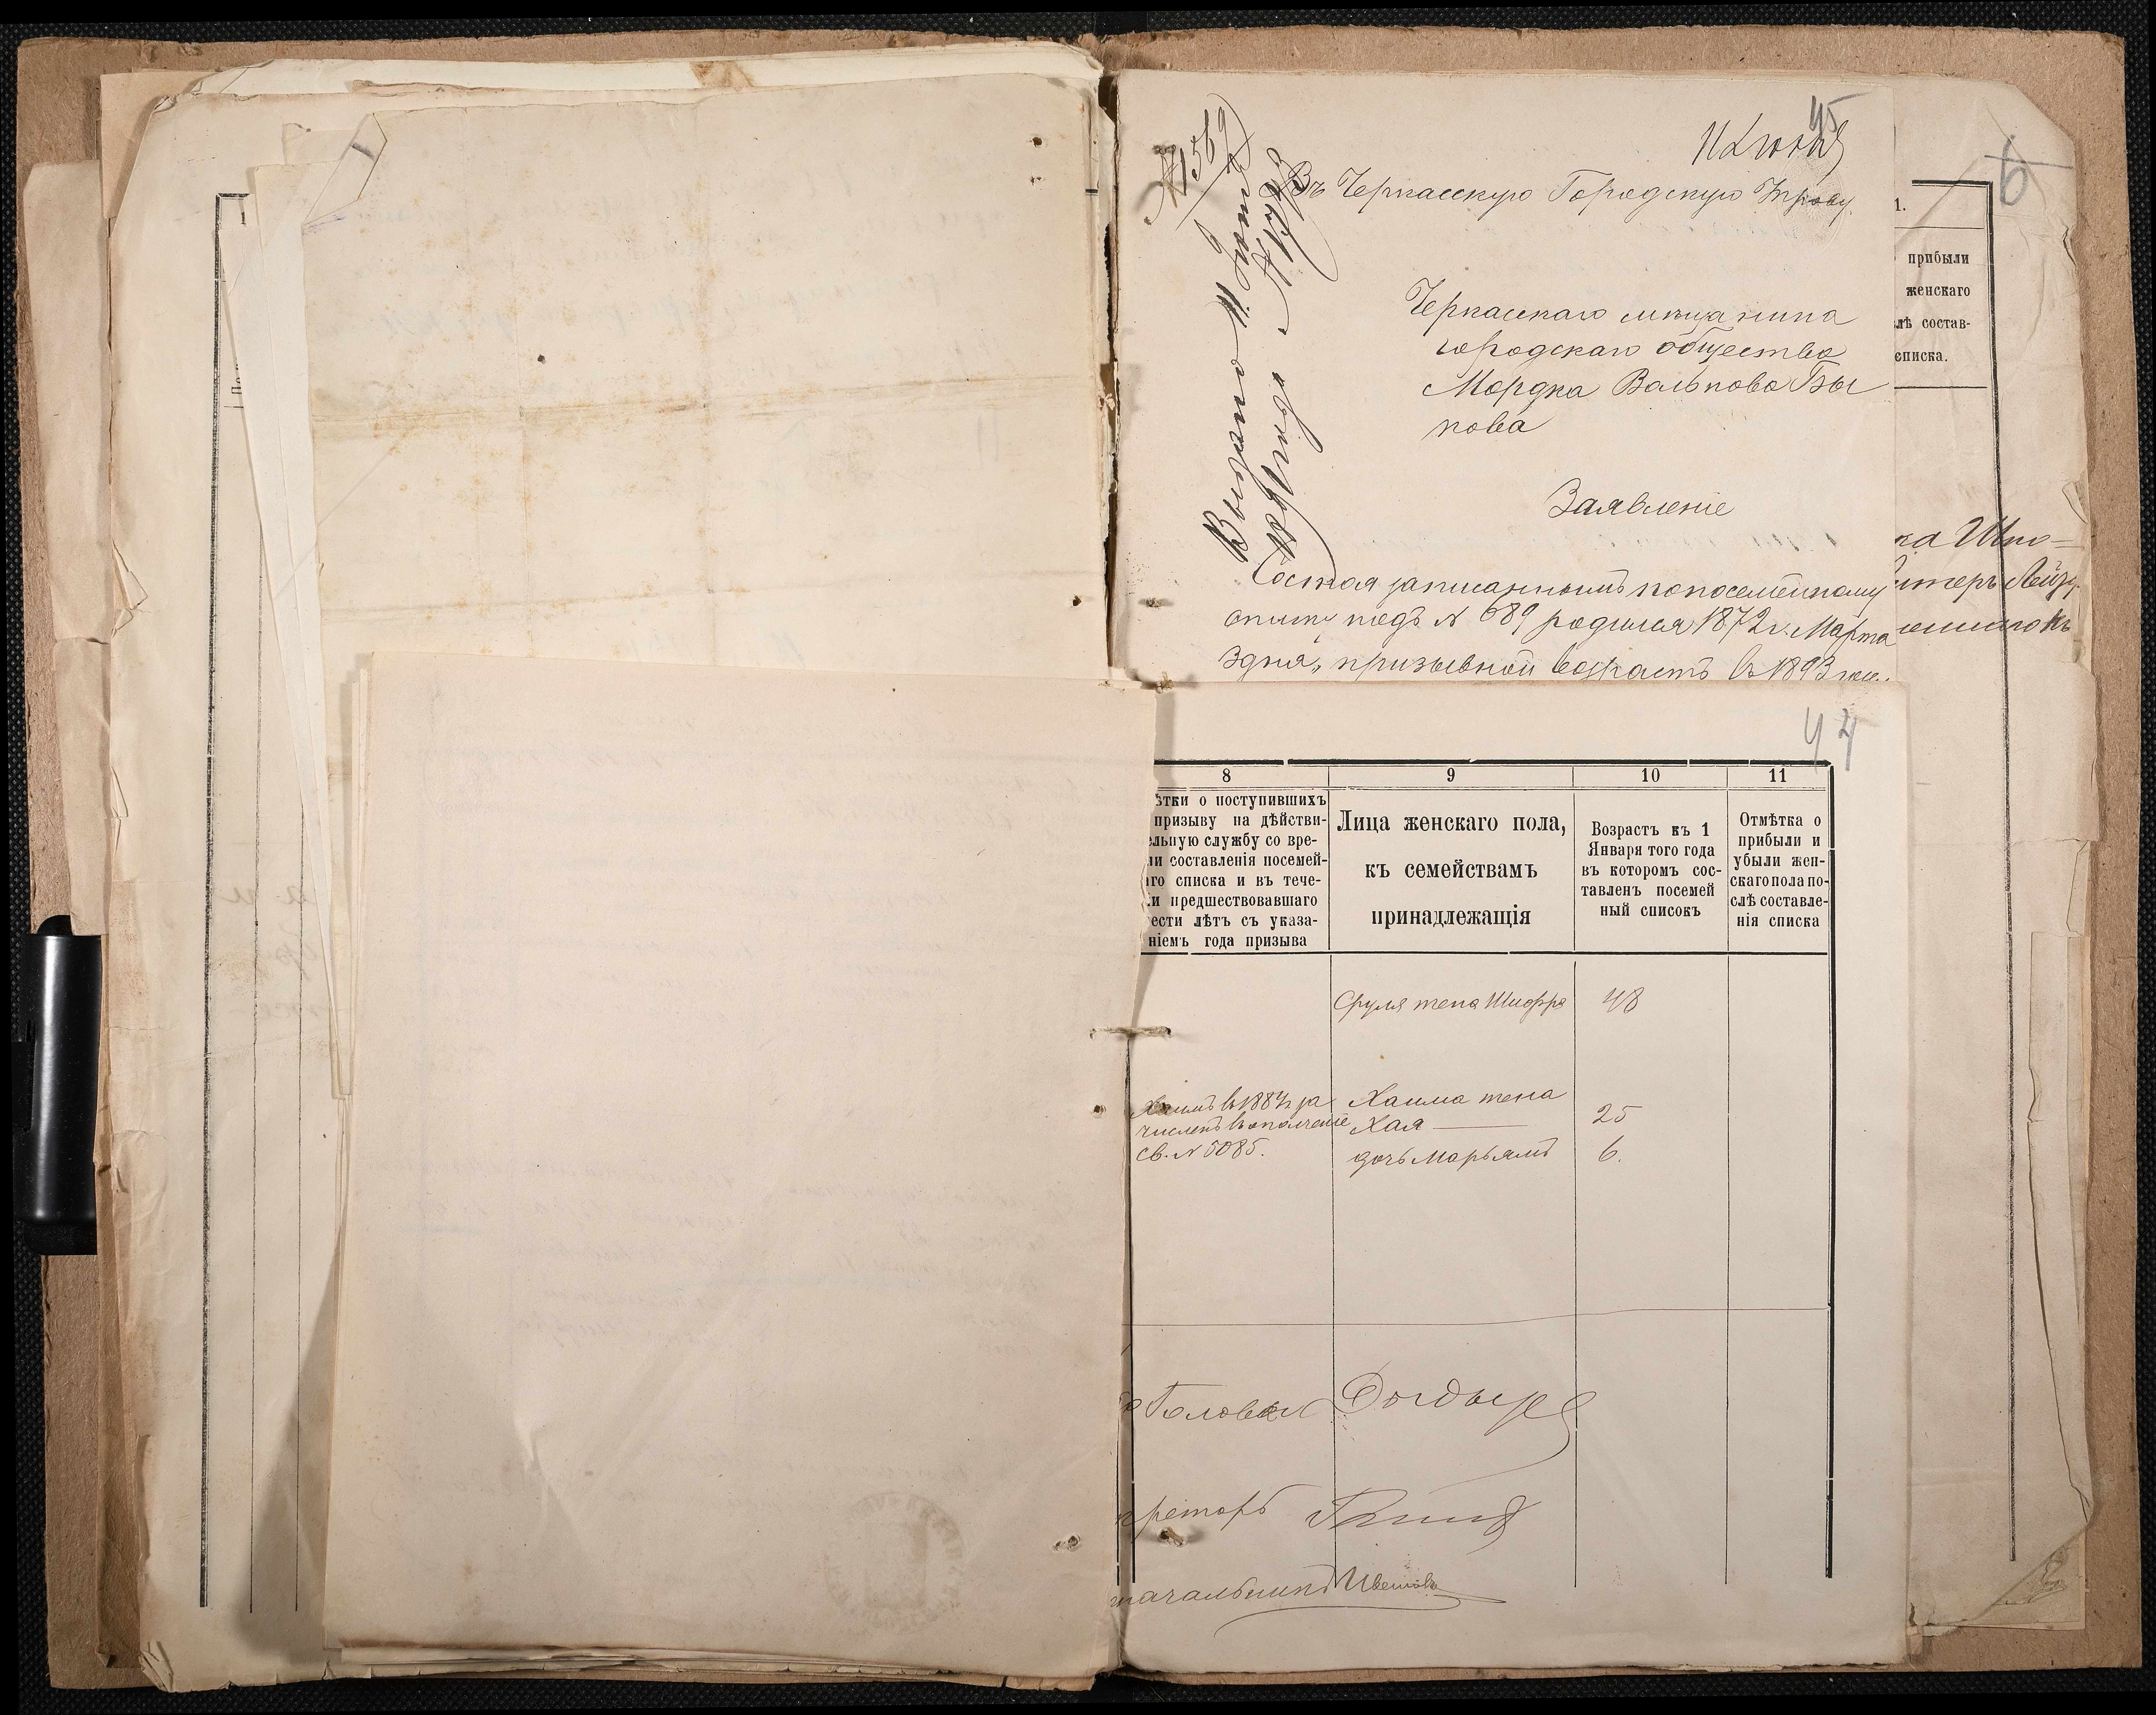 45
№ 1569
Въ Черкасскую Городскую Управу.
Черкасскаго мѣщанина
городскаго общества
Мордка Валькова Бы
кова
Заявленіе
Состоя записаннымъ по посемейному
списку подъ № 689 родился 1872 г. Марта
3 дня, призывной возрастъ въ 1893 год.
6
1.
прибыли
женскаго
лѣ состав-
списка.
44
8
ѣтки о поступившихъ
призыву на дѣйстви-
ельную службу со вре-
ни составленія посемей-
го списка и въ тече-
и предшествовавшаго
ести лѣтъ съ указа-
ніемъ года призыва
9
Лица женскаго пола,
къ семействамъ
принадлежащія
10
Возрастъ къ 1
Января того года
въ которомъ сос-
тавленъ посемей
ный списокъ
11
Отмѣтка о
прибыли и
убыли жен-
скаго пола по-
слѣ составле-
нія списка
Сруля жена Шифра 48
Хаимъ въ 1887 г за
численъ въ ополченіе
св. № 5085.
Хаима жена
Хая 25
дочь Марьямъ 6.
Голова
кретарь
начальникъ Цвѣтков